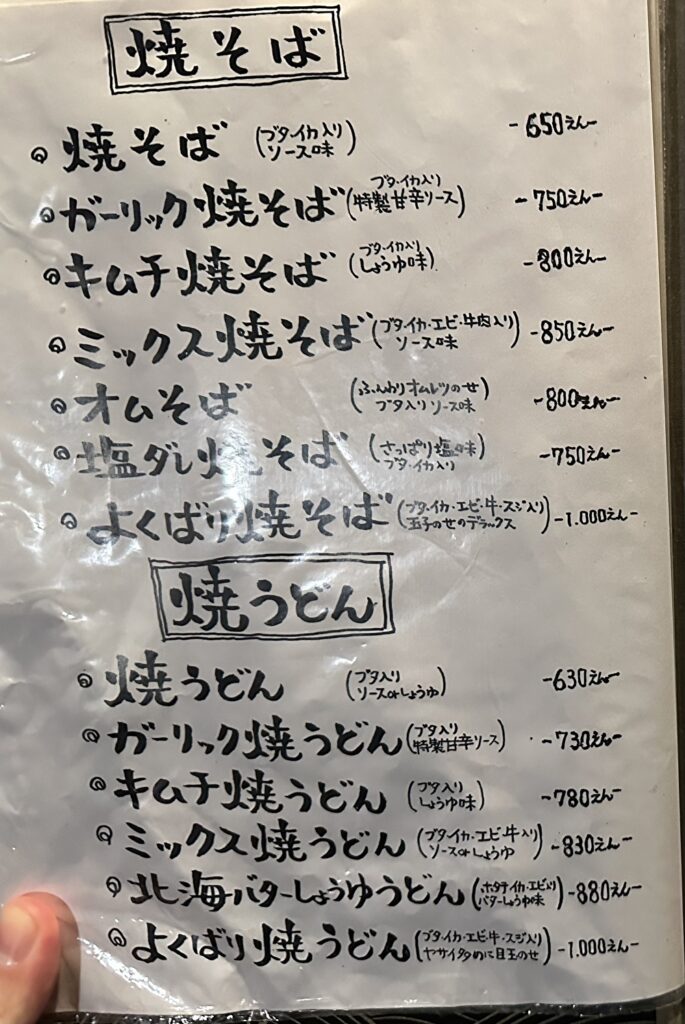 焼そば
焼そば (ブタ・イカ入り ソース味) -650えん-
ガーリック焼そば (ブタ・イカ入り 特製甘辛ソース) -750えん-
キムチ焼そば (ブタ・イカ入り しょうゆ味) -800えん-
ミックス焼そば (ブタ・イカ・エビ・牛肉入り ソース味) -850えん-
オムそば (ふんわりオムレツのせ ブタ入りソース味) -800えん-
塩ダレ焼そば (さっぱり塩味 ブタ・イカ入り) -750えん-
よくばり焼そば (ブタ・イカ・エビ・牛・スジ入り 玉子のせのデラックス) -1.000えん-
焼うどん
焼うどん (ブタ入り ソースorしょうゆ) -630えん-
ガーリック焼うどん (ブタ入り 特製甘辛ソース) -730えん-
キムチ焼うどん (ブタ入り しょうゆ味) -780えん-
ミックス焼うどん (ブタ・イカ・エビ・牛入り ソースorしょうゆ) -830えん-
北海バターしょうゆうどん (ホタテイカ・エビ入り バターしょうゆ味) -880えん-
よくばり焼うどん (ブタ・イカ・エビ・牛・スジ入り ヤサイタめに目玉のせ) -1.000えん-